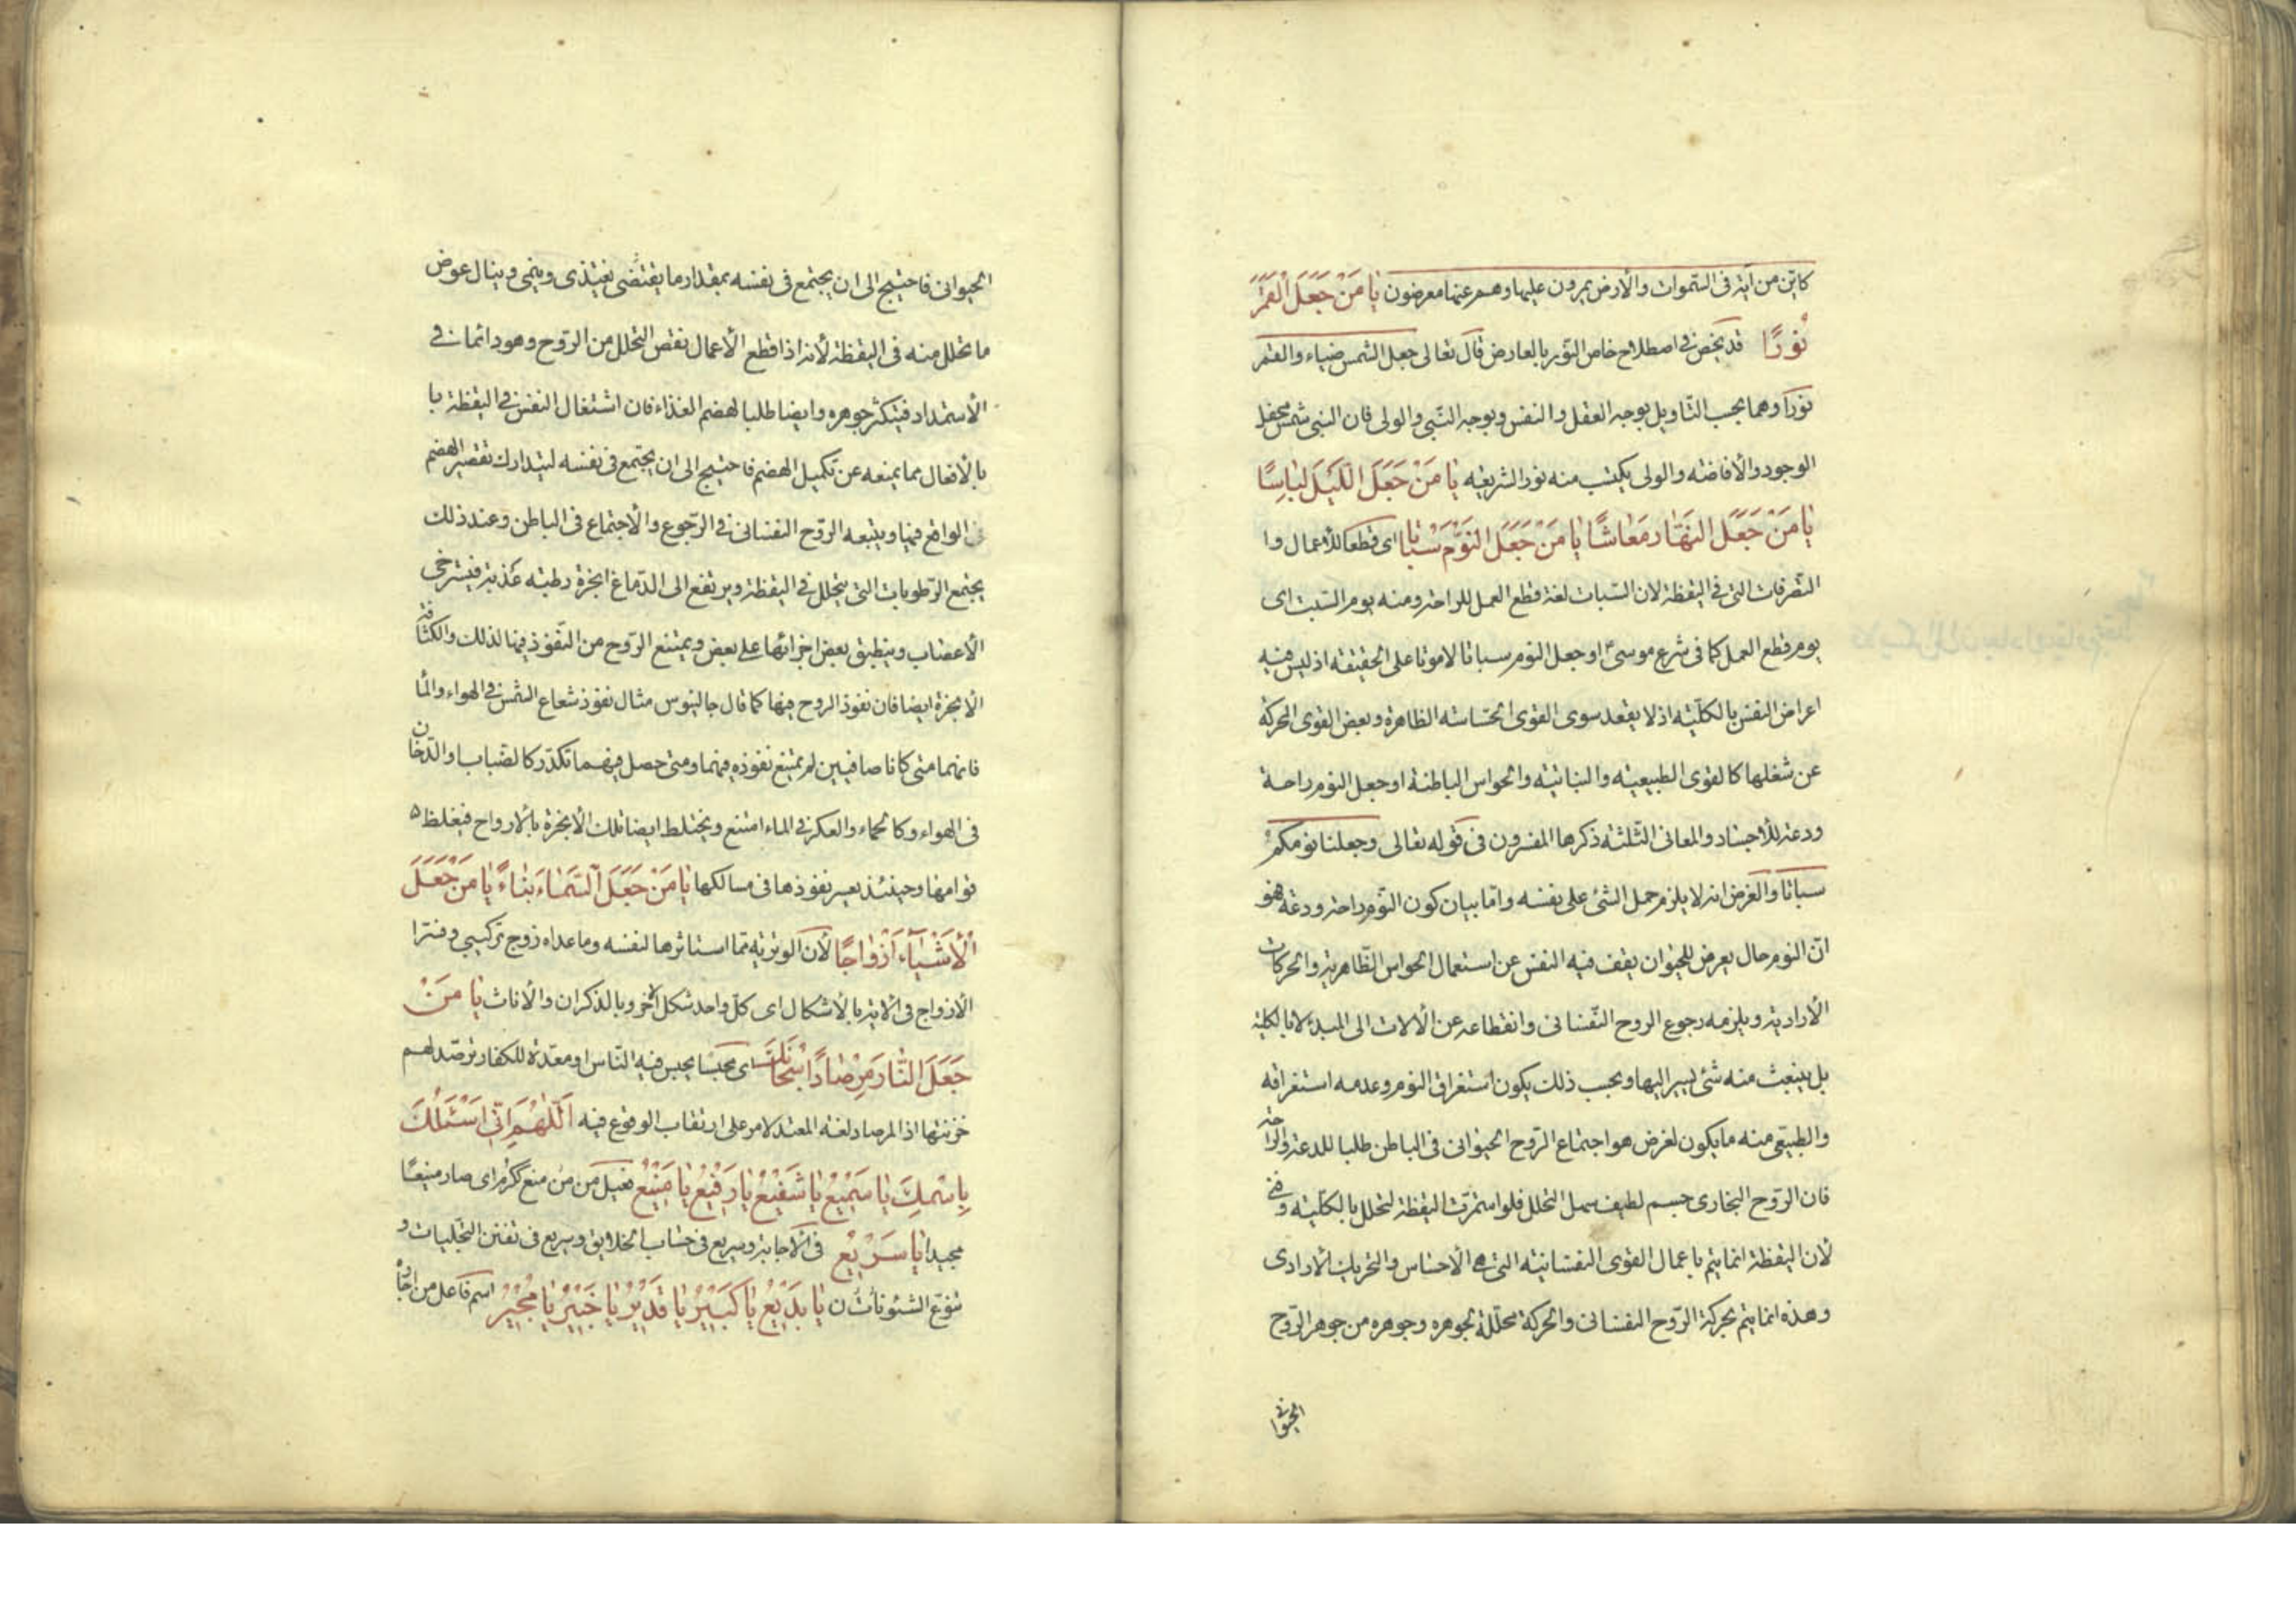 كاين من آية فى السّموات والأرض يمرون عليها وهم عنها معرضون يا مَنْ جَعَلَ الْقَمَرَ
نُورًا قد يخص فى اصطلاح خاص النّور بالعارض قال تعالى جعل الشمس ضياء والقمر
نورا وهما بحسب التّاويل بوجه العقل والنفس وبوجه النّبى والولى فان النبى شمس محفل
الوجود والأفاضه والولى يكتسب منه نور الشريعه يا مَنْ جَعَلَ اللَّيْلَ لِبَاسًا
يا مَنْ جَعَلَ النَّهَارَ مَعَاشًا يا مَنْ جَعَلَ النَّوْمَ سُبَاتًا اى قطعا للأعمال وا
التّصرفات التى فى اليقظة لان السّبات لغة قطع العمل للراحة ومنه يوم السّبت اى
يوم قطع العمل كما فى شرع موسىٰ او جعل النوم سباتا لا موتا على الحقيقه اذ ليس فيه
اعراض النفس بالكلّيه اذ لا يقعد سوى القوى الحسّاسه الظاهرة وبعض القوى المحركة
عن شغلها كالقوى الطبيعيه والنباتيّه والحواس الباطنة او جعل النوم راحة
ودعة للأجساد والمعانى الثّلثه ذكرها المفسرون فى قوله تعالى وجعلنا نومكم
سباتا والغرض انه لا يلزم حمل الشئ على نفسه وامّا بيان كون النّوم راحة ودعة فهو
انّ النوم حال يعرض للحيوان يقف فيه النفس عن استعمال الحواس الظّاهرية والحركات
الأرادية ويلزمه رجوع الروح النّفسانى وانقطاعه عن الألات الى المبدء لا بالكلية
بل ينبعث منه شئ يسير اليها وبحسب ذلك يكون استغراق النوم وعدمه استغراقه
والطبيعى منه ما يكون لغرض هو اجتماع الرّوح الحيوانى فى الباطن طلبا للدعة والراحة
فان الرّوح البخارى جسم لطيف سهل التحلل فلو استمرّت اليقظة لتحلل بالكلّيه وفنى
لأن اليقظة انما يتم باعمال القوى النفسانيّه التى هى الأحساس والتحريك الأرادى
وهذه انما يتم بحركة الرّوح النفسانى والحركة محلّلة لجوهره وجوهره من جوهر الرّوح
الحيوانى
الحيوانى فاحتيج الى ان يجتمع فى نفسه بمقدار ما يقتضى يغتذى وينمى وينال عوض
ما تحلل منه فى اليقظة لأنه اذا قطع الأعمال نقص التحلل من الرّوح وهو دائما فى
الأستمداد فيتكثر جوهره وايضا طلبا لهضم الغذاء فان اشتغال النفس فى اليقظة با
بالأفعال مما يمنعه عن تكميل الهضم فاحتيج الى ان يجتمع فى نفسه ليتدارك تقصير الهضم
الواقع فيها ويتبعه الرّوح النفسانى فى الرّجوع والأجتماع فى الباطن وعند ذلك
يجتمع الرّطوبات التى يتحلل فى اليقظة ويرتفع الى الدّماغ ابخرة رطبه عذبة فيسترخى
الأعصاب وينطبق بعض اجزائها على بعض ويمتنع الرّوح من النّفوذ فيها لذلك والكثافة
الأبخرة ايضا فان نفوذ الروح فيها كما قال جالينوس مثال نفوذ شعاع الشّمس فى الهواء والما
فانهما متى كانا صافيين لم يمتنع نفوذه فيهما ومتى حصل فيهما تكدّر كالضباب والدّخان
فى الهواء وكالحماء والعكر فى الماء امتنع ويختلط ايضا تلك الأبخرة بالأرواح فيغلظ
قوامها وحينئذ يعسر نفوذها فى مسالكها يا مَنْ جَعَلَ السَّمَاءَ بِنَاءً يا مَنْ جَعَلَ
الْأَشْيَاءَ أَزْوَاجًا لأن الوترية مما استاثرها لنفسه وما عداه زوج تركيبى وفسّرا
الأزواج فى الأية بالأشكال اى كلّ واحد شكل لأخر وبالذكران والأناث يا مَنْ
جَعَلَ النَّارَ مِرْصَادًا سُبْحَانَكَ اى محبسا يحبس فيه النّاس او معدّة للكفار ترصّد لهم
خزنتها اذ المرصاد لغة المعتد لامر على ارتقاب الوقوع فيه اَللّٰهُمَّ اِنّى اَسْئَلُكَ
بِاسْمِكَ يَا سَمِيْعُ يَا شَفِيْعُ يَا رَفِيْعُ يَا مَنِيْعُ فعيل من مَن منع ككرم اى صار منيعًا
مجيدا يَا سَرِيْعُ فى الأجابة وسريع فى حساب الخلايق وسريع فى تفنن التجلّيات و
تنوّع الشئونات ن يَا بَدِيْعُ يَا كَبِيْرُ يَا قَدِيْرُ يَا خَبِيْرُ يَا مُجِيْرُ اسم فاعل من اجاره